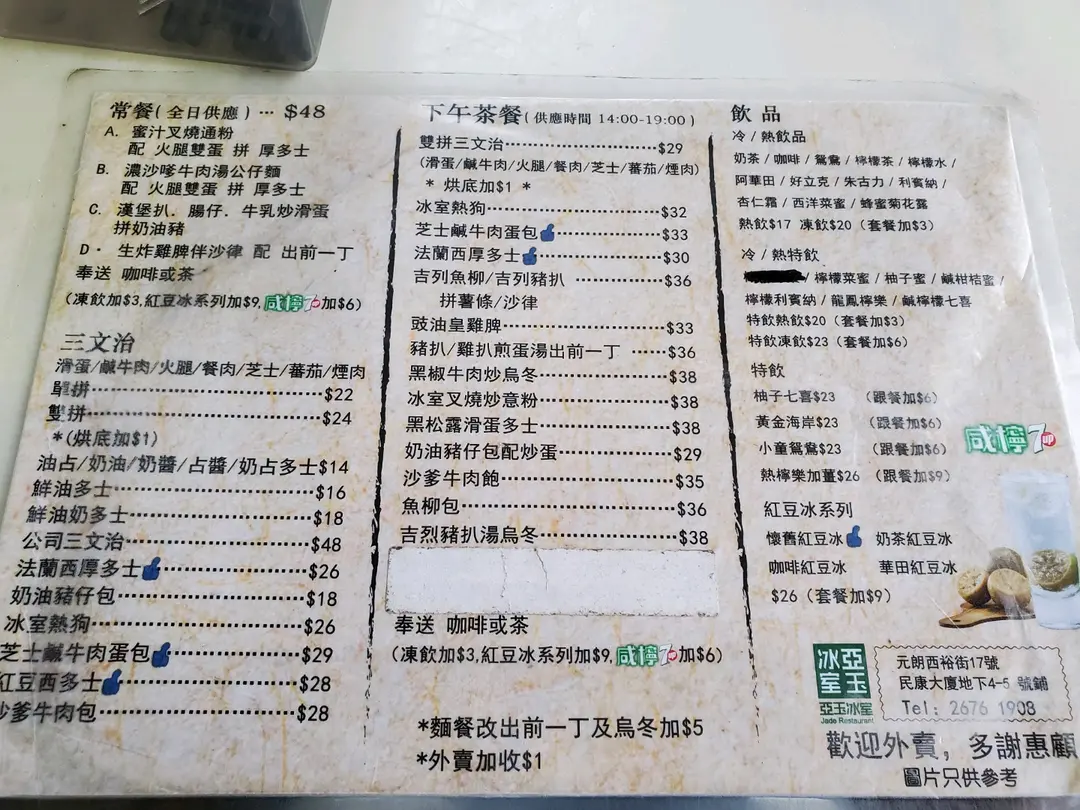 常餐(全日供應)… $48
A. 蜜汁叉燒通粉
配 火腿雙蛋 拼 厚多士
B. 濃沙嗲牛肉湯公仔麵
配 火腿雙蛋 拼 厚多士
C. 漢堡扒. 腸仔. 牛乳炒滑蛋
拼奶油豬
D. 生炸雞脾伴沙律 配 出前一丁
奉送 咖啡或茶
(凉飲加$3,紅豆冰系列加$9,咸檸7加$6)
三文治
滑蛋/鹹牛肉/火腿/餐肉/芝士/蕃茄/煙肉
單拼…$22
雙拼…$24
*(烘底加$1)
油占/奶油/奶醬/占醬/奶占多士$14
鮮油多士…$16
鮮油奶多士…$18
公司三文治…$48
法蘭西厚多士…$26
奶油豬仔包…$18
冰室熱狗…$26
芝士鹹牛肉蛋包…$29
紅豆西多士…$28
沙爹牛肉包…$28
下午茶餐(供應時間 14:00-19:00)
雙拼三文治…$29
(滑蛋/鹹牛肉/火腿/餐肉/芝士/蕃茄/煙肉)
* 烘底加$1 *
冰室熱狗…$32
芝士鹹牛肉蛋包…$33
法蘭西厚多士…$30
吉列魚柳/吉列豬扒…$36
拼薯條/沙律
豉油皇雞脾…$33
豬扒/雞扒煎蛋湯出前一丁…$36
黑椒牛肉炒烏冬…$38
冰室叉燒炒意粉…$38
黑松露滑蛋多士…$38
奶油豬仔包配炒蛋…$29
沙爹牛肉飽…$35
魚柳包…$36
吉烈豬扒湯烏冬…$38
奉送 咖啡或茶
(凍飲加$3,紅豆冰系列加$9,咸檸7加$6)
*麵餐改出前一丁及烏冬加$5
*外賣加收$1
飲品
冷/熱飲品
奶茶/咖啡/鴛鴦/檸檬茶/檸檬水/
阿華田/好立克/朱古力/利賓納/
杏仁霜/西洋菜蜜/蜂蜜菊花露
熱飲$17 凍飲$20 (套餐加$3)
冷/熱特飲
/檸檬菜蜜/柚子蜜/鹹柑桔蜜/
檸檬利賓納/龍鳳檸樂/鹹檸檬七喜
特飲熱飲$20 (套餐加$3)
特飲凍飲$23 (套餐加$6)
特飲
柚子七喜$23 (跟餐加$6)
黃金海岸$23 (跟餐加$6)
小童鴛鴦$23 (跟餐加$6)
熱檸樂加薑$26 (跟餐加$9)
咸檸7
紅豆冰系列
懷舊紅豆冰 奶茶紅豆冰
咖啡紅豆冰 華田紅豆冰
$26 (套餐加$9)
亞玉冰室
亞玉冰室
Jade Restaurant
元朗西裕街17號
民康大廈地下4-5 號鋪
Tel: 2676 1908
歡迎外賣, 多謝惠顧
圖片只供參考